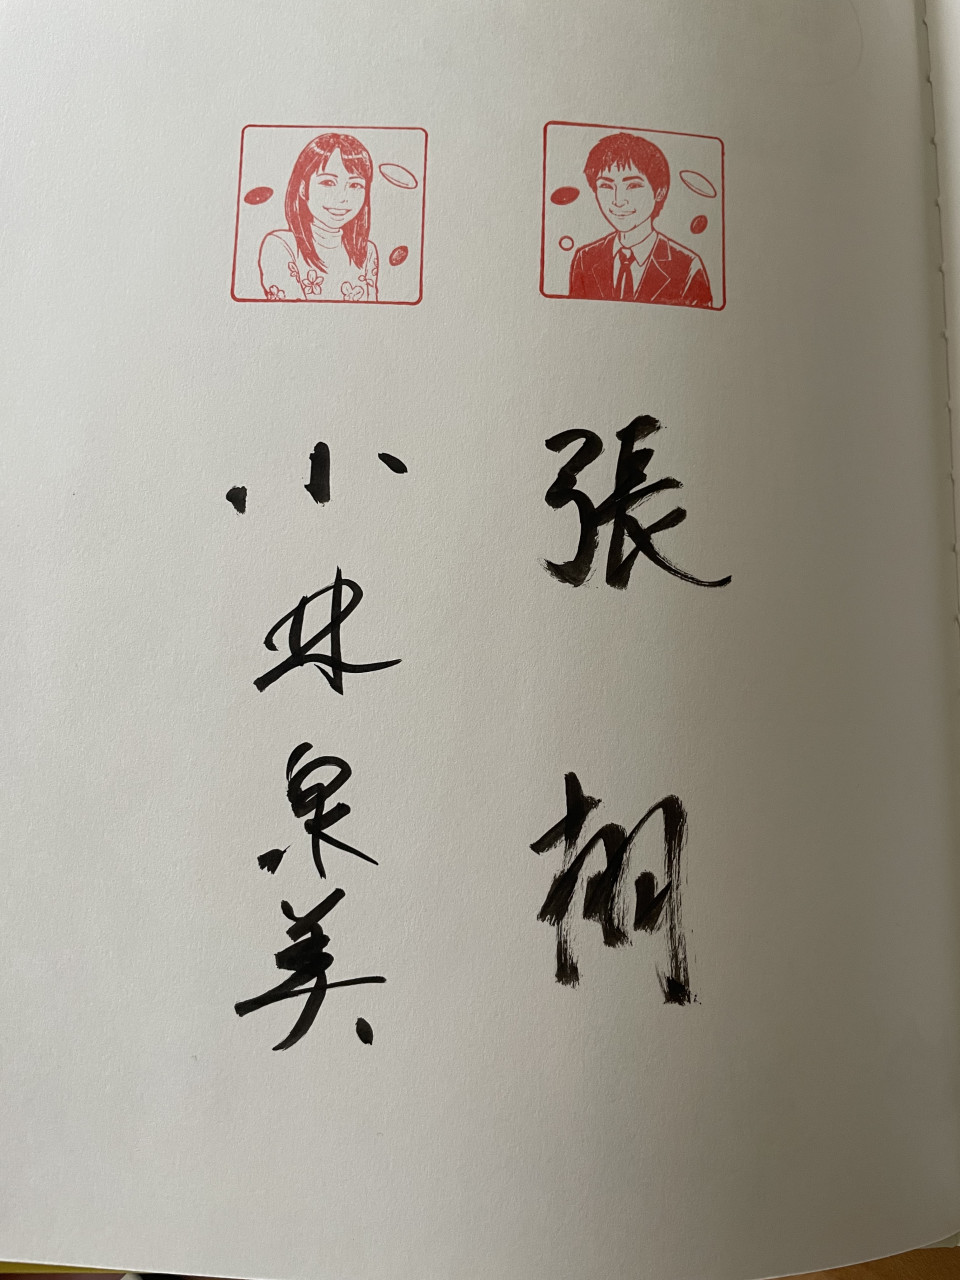 張栩
小林泉美